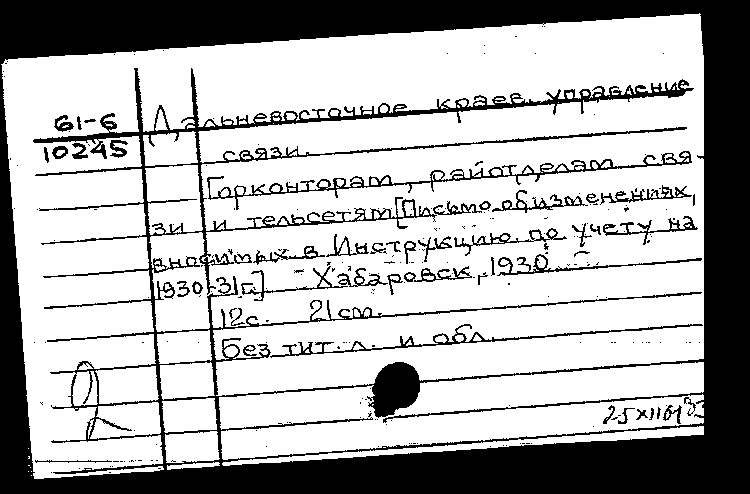 61-6
10245
Дальневосточное краев. управление
связи.
Горконторам, райотделам свя-
зи и тельсетям [Письмо об изменениях,
вносимых в Инструкцию по учету на
1930-31г.] - Хабаровск, 1930
12с. 21см.
Без тит. л. и обл.